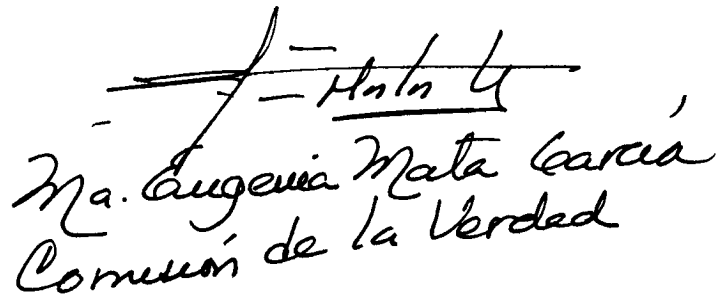 Ma. Eugenia Mata García
Comisión de la Verdad